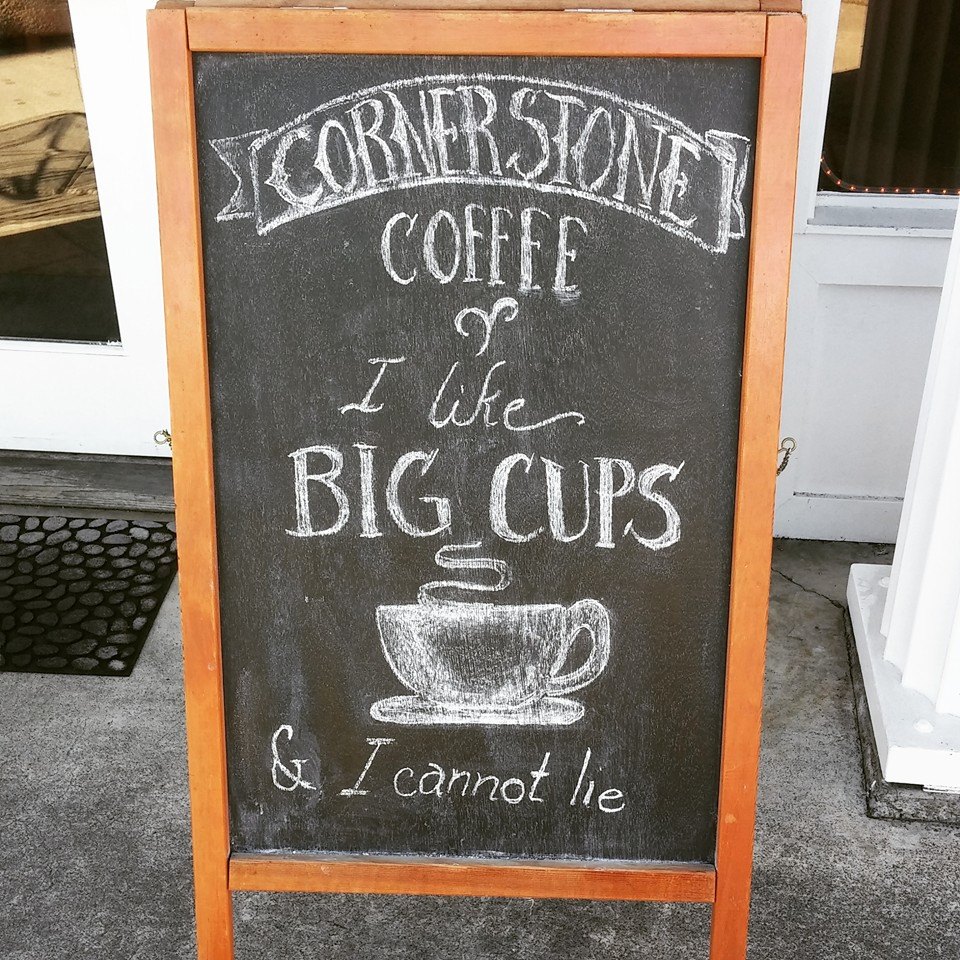 CORNERSTONE
COFFEE
I like
BIG CUPS
& I cannot lie